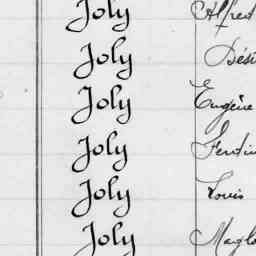 Joly Alfred
Joly Dési
Joly Eugène
Joly
Joly Louis
Joly